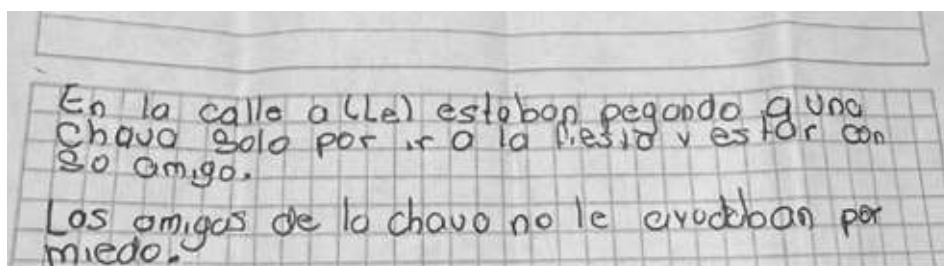 En la calle a (Le) estaban pegando a una
chava solo por ir a la fiesta y estar con
so amigo.
Los amigas de la chava no le ayudaban por
miedo.